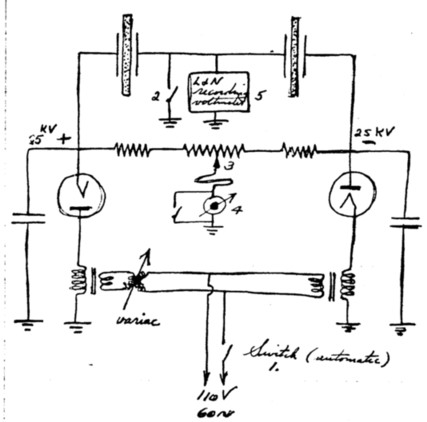 L&N
recording
voltmeter
2
5
25 KV +
25 KV
-
3
4
variac
Switch (automatic)
1.
110V
60~